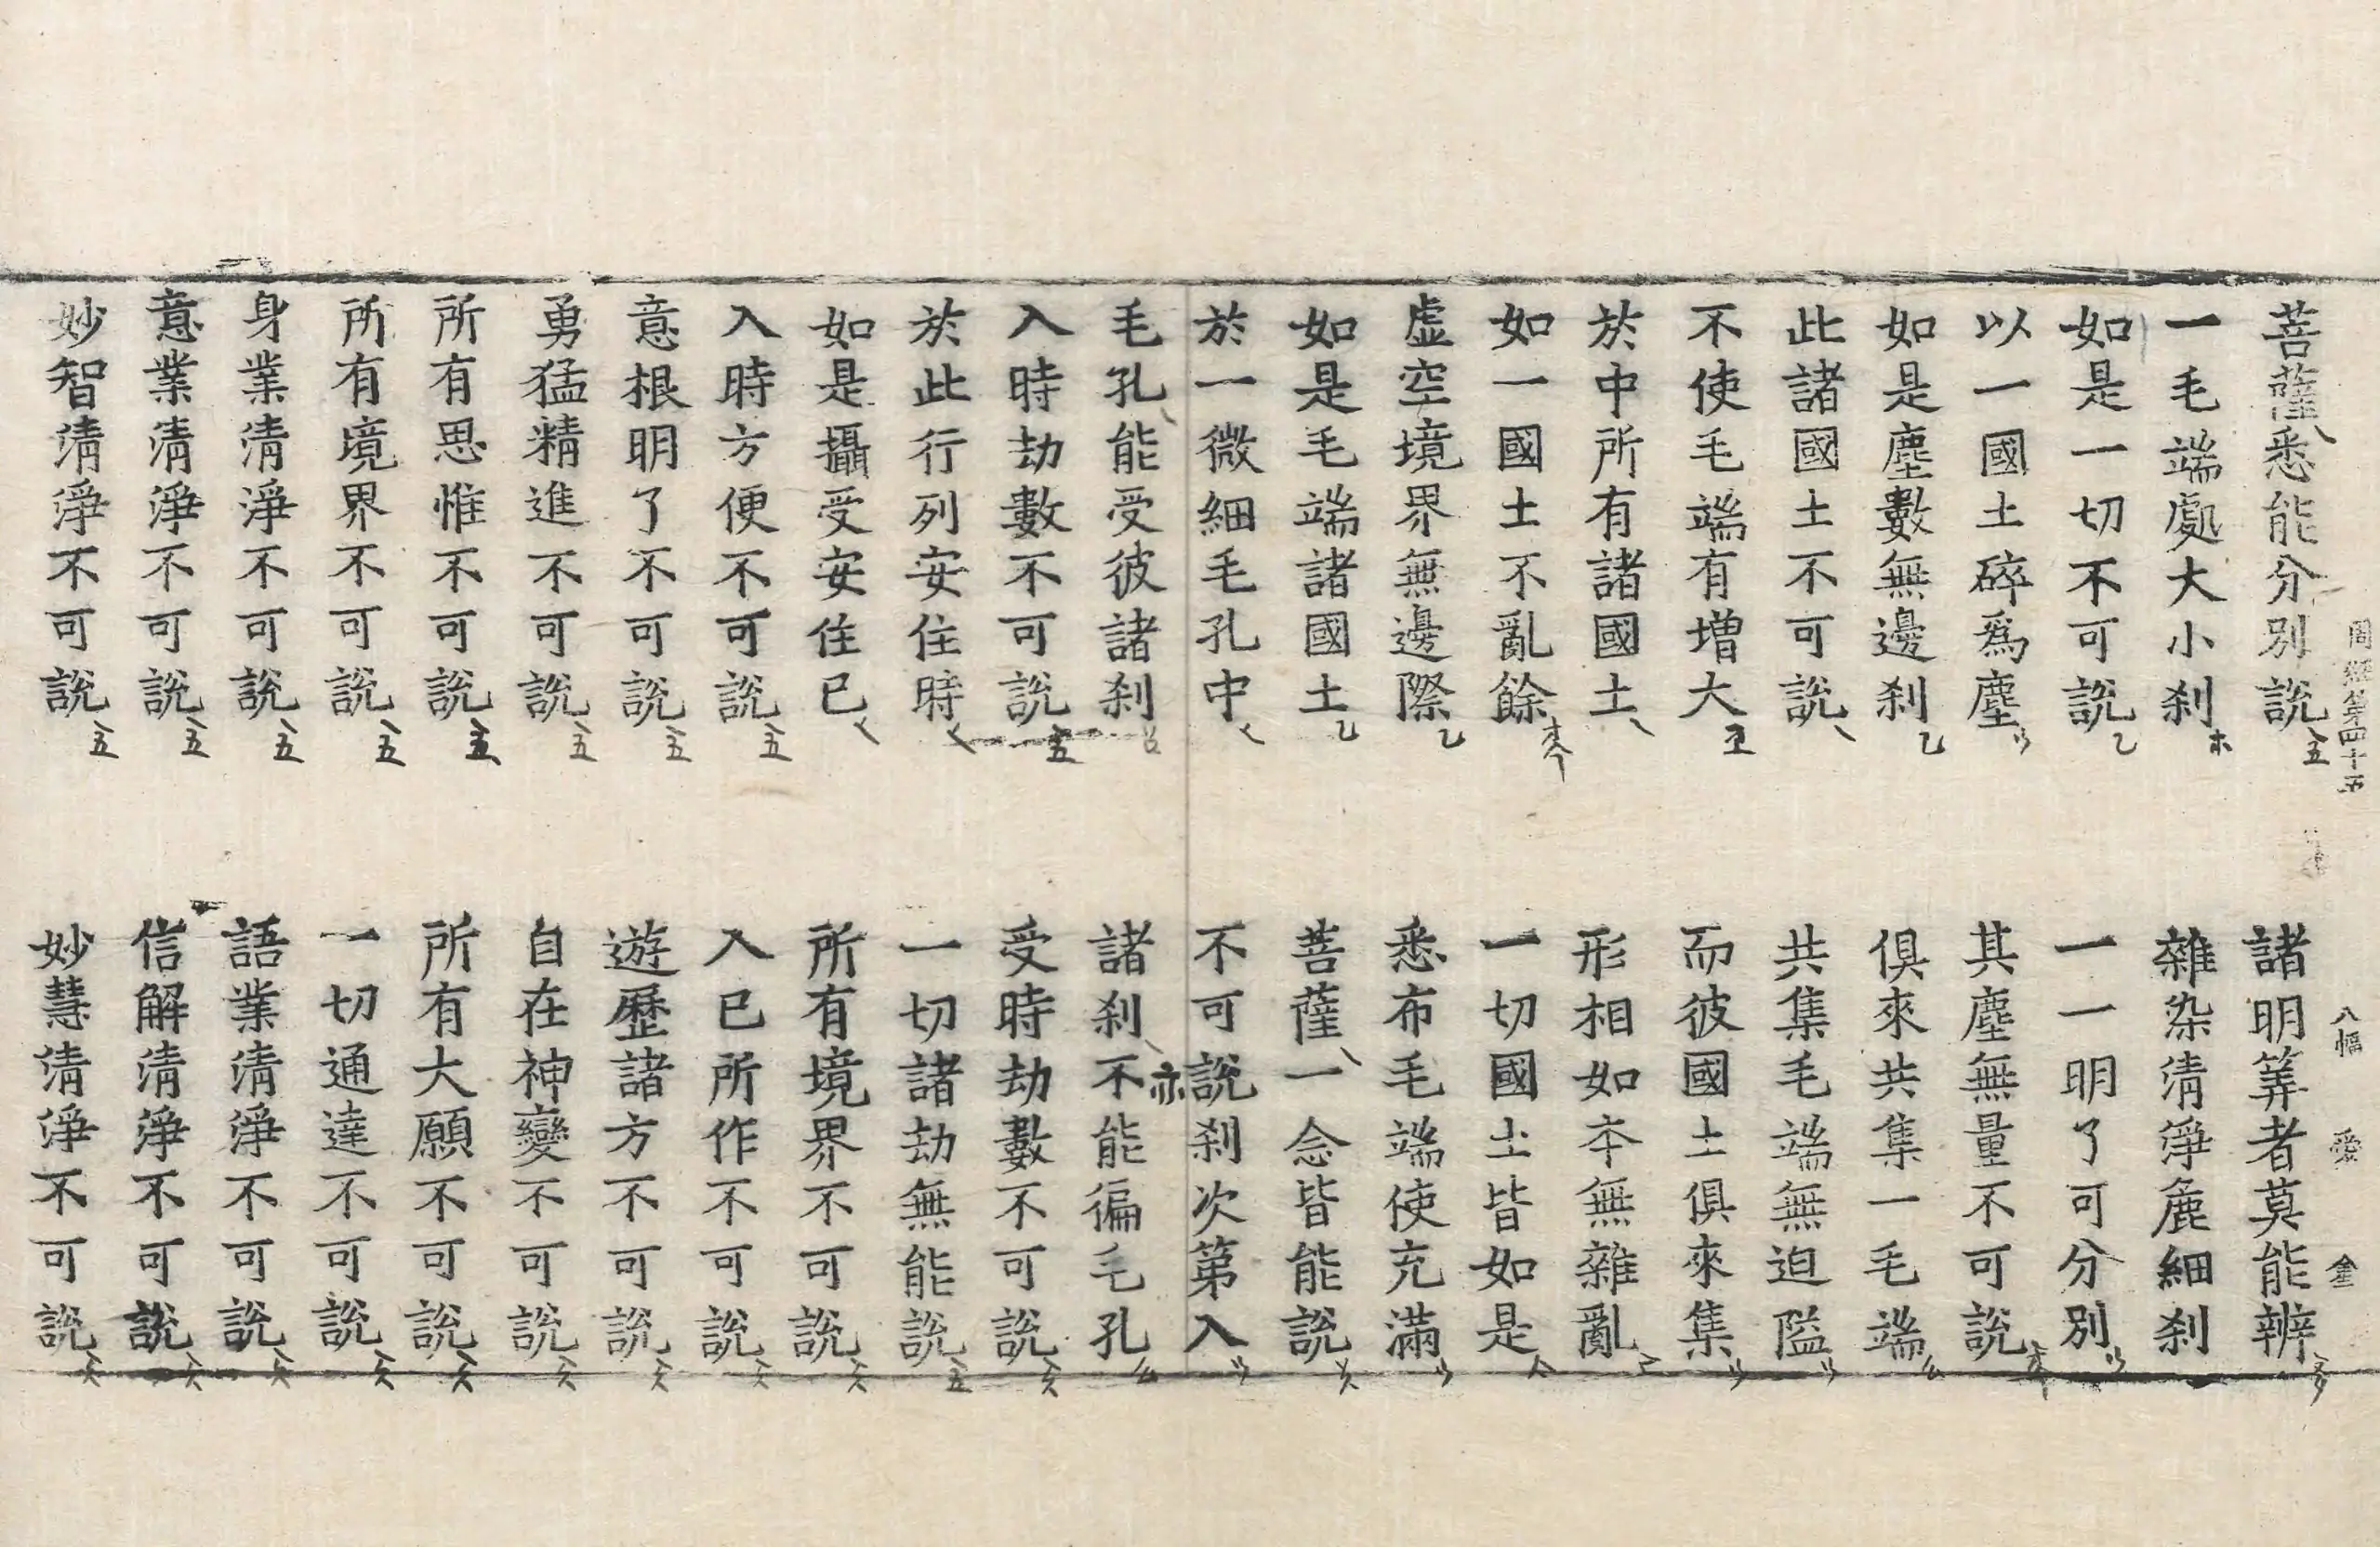 周經第四十五 八幅 愛 金
菩薩悉能分別說 諸明筭者莫能辨
一毛端處大小刹 雜染清淨麁細刹
如是一切不可說 一一明了可分別
以一國土碎爲塵 其塵無量不可說
如是塵數無邊刹 俱來共集一毛端
此諸國土不可說 共集毛端無迫隘
不使毛端有增大 而彼國土俱來集
於中所有諸國土 形相如本無雜亂
如一國土不亂餘 一切國土皆如是
虛空境界無邊際 悉布毛端使充滿
如是毛端諸國土 菩薩一念皆能說
於一微細毛孔中 不可說刹次第入
毛孔能受彼諸刹 諸刹不能徧毛孔
入時劫數不可說 受時劫數不可說
於此行列安住時 一切諸劫無能說
如是攝受安住已 所有境界不可說
入時方便不可說 入已所作不可說
意根明了不可說 遊歷諸方不可說
勇猛精進不可說 自在神變不可說
所有思惟不可說 所有大願不可說
所有境界不可說 一切通達不可說
身業清淨不可說 語業清淨不可說
意業清淨不可說 信解清淨不可說
妙智清淨不可說 妙慧清淨不可說